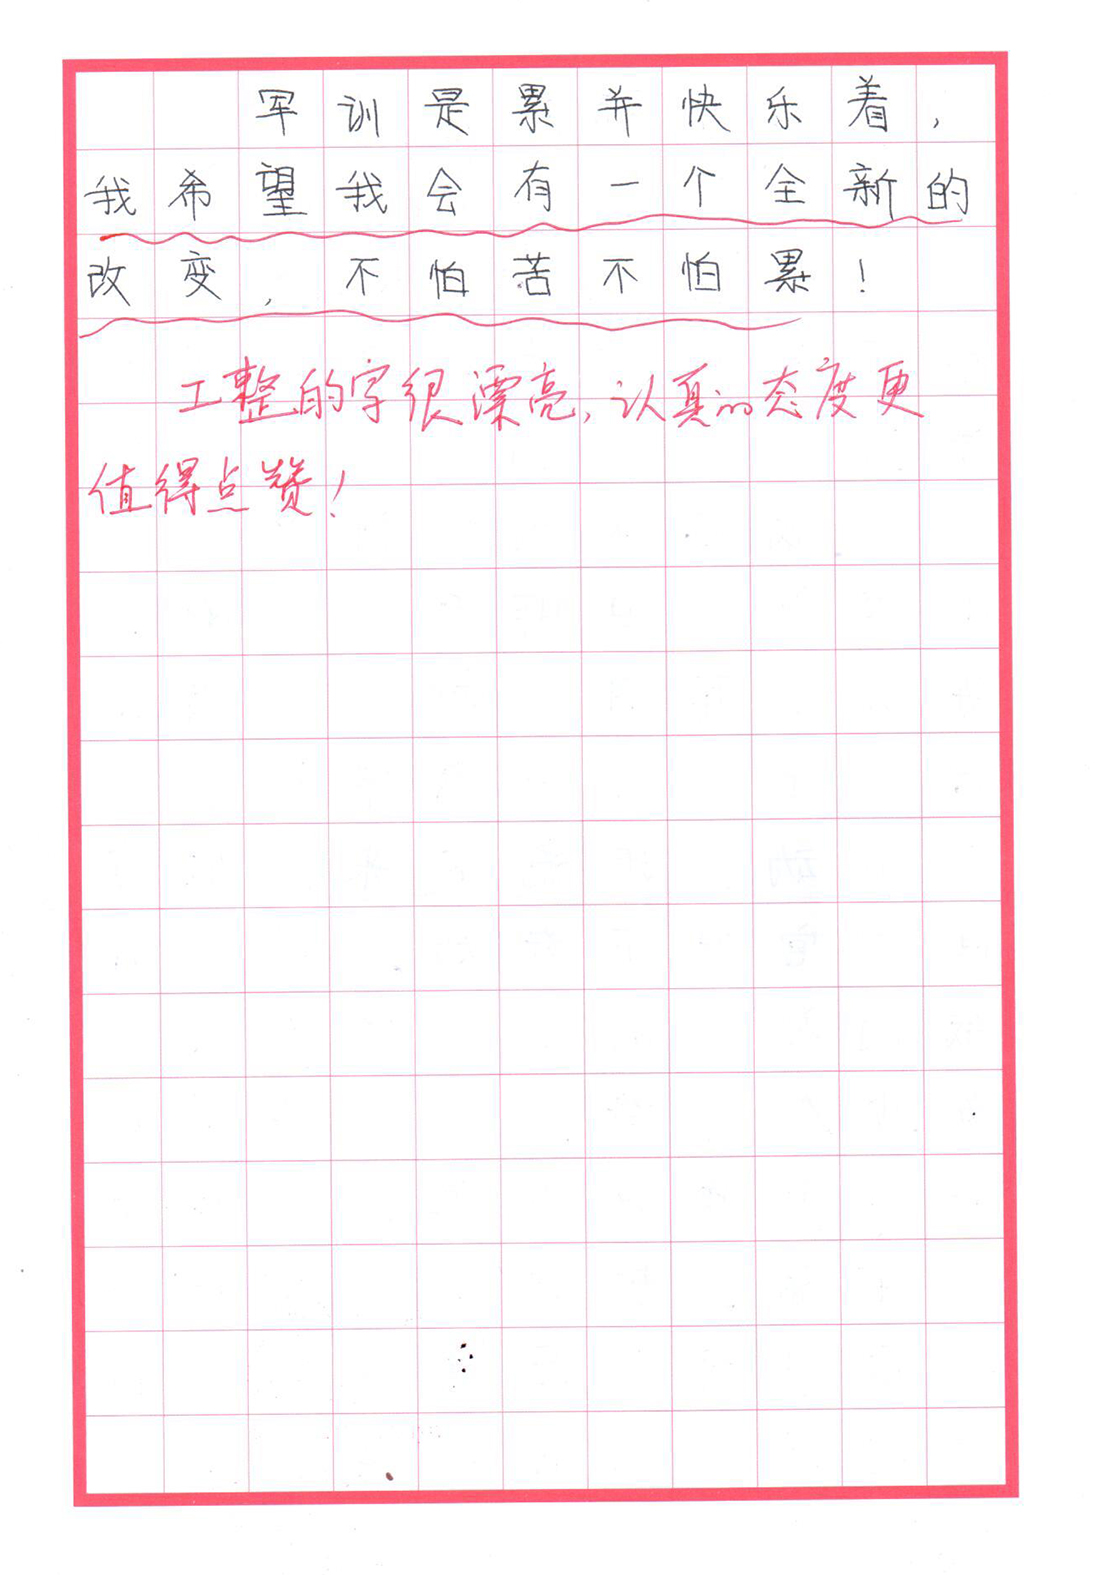 军训是累并快乐着，
我希望我会有一个全新的
改变，不怕苦不怕累！
工整的字很漂亮，认真的态度更
值得点赞！